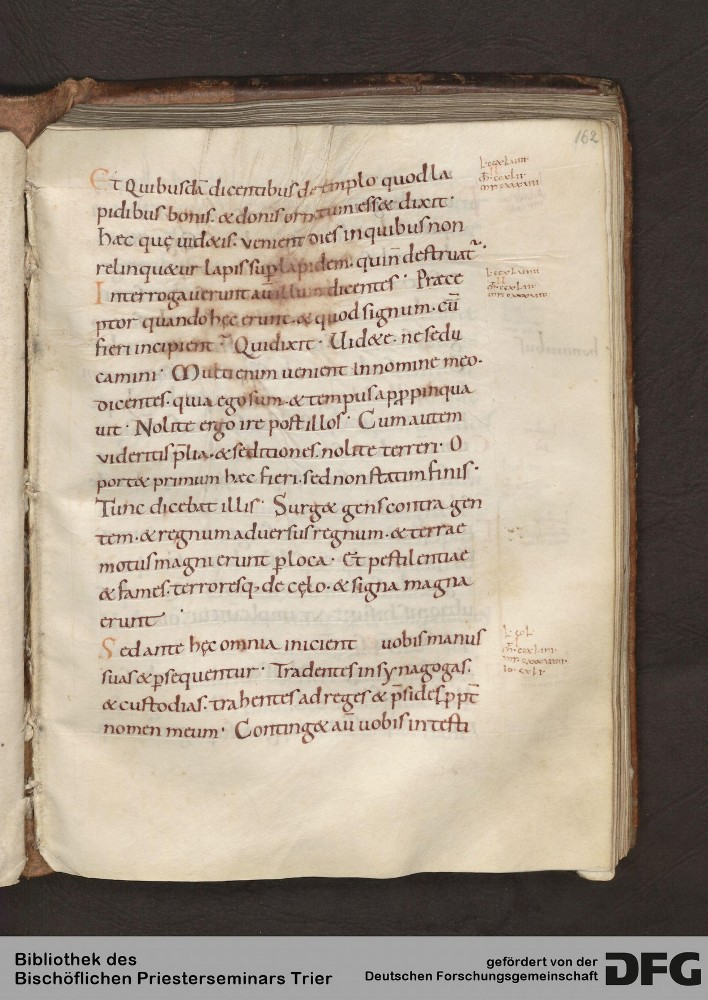 162
Et Quibusdā dicentibus de templo quod la
pidibus bonis. & donis ornatum ess& dixit·
haec quę uid&is. venient dies in quibus non
relinqu&ur lapis sup lapidem. qui n̄ destruat̄.
Interrogauerunt aū illum dicentes· Praece
ptor quando hęc erunt. & quod signum. cū
fieri incipient· Qui dixit· Uid&e. ne sedu
camini· Multi enim uenient in nomine meo.
dicentes. quia ego sum. & tempus appropinqua
uit· Nolite ergo ire post illos· Cum autem
videritis p̄lia. & seditiones. nolite terreri· O
port& primum haec fieri. sed non statim finis·
Tunc dicebat illis· Surg& gens contra gen
tem. & regnum aduersus regnum. & terrae
motus magni erunt p loca· Et pestilentiae
& fames. terroresq; de cęlo. & signa magna
erunt·
Sed ante hęc omnia inicient uobis manus
suas & psequentur· Tradentes in synagogas.
& custodias. trahentes ad reges & p̄sides. ppt̄
nomen meum· Conting& aū uobis in testi
Bibliothek des
Bischöflichen Priesterseminars Trier
gefördert von der
Deutschen Forschungsgemeinschaft
DFG